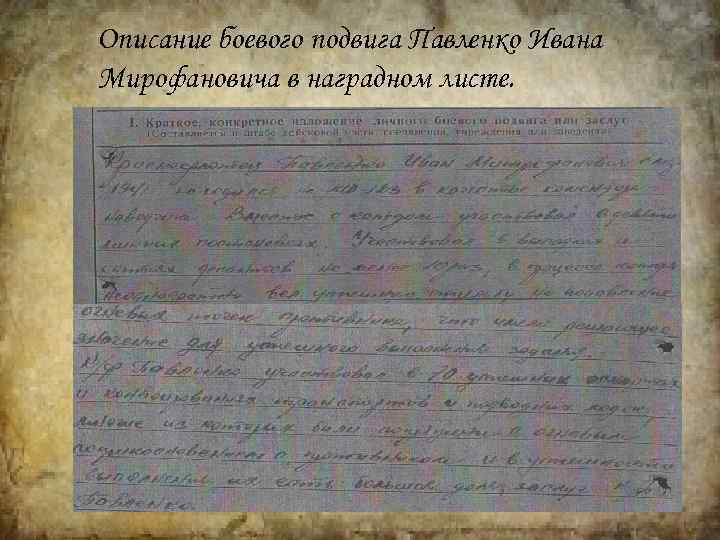 Описание боевого подвига Павленко Ивана
Мирофановича в наградном листе.
I. Краткое, конкретное изложение личного боевого подвига или заслуг
(Составляется в штабе войсковой части, соединения, учреждения или заведения)
Краснофлотец Павленко Иван Митрофанович с
находился на в качестве
наводчика. Вместе с участвовал в
постановках. Участвовал в высадке и
десантов не менее в процессе
неоднократно вел успешно по подавлению
огневых точек противника, что имело решающее
значение для успешного выполнения задания.
К/ф Павленко участвовал в 70 успешных
и конвоирования транспортов и подводных лодок,
многие из которых были с огневым
соприкосновением с противником и в успешности
выполнения их есть большая доля заслуг к/ф
Павленко.